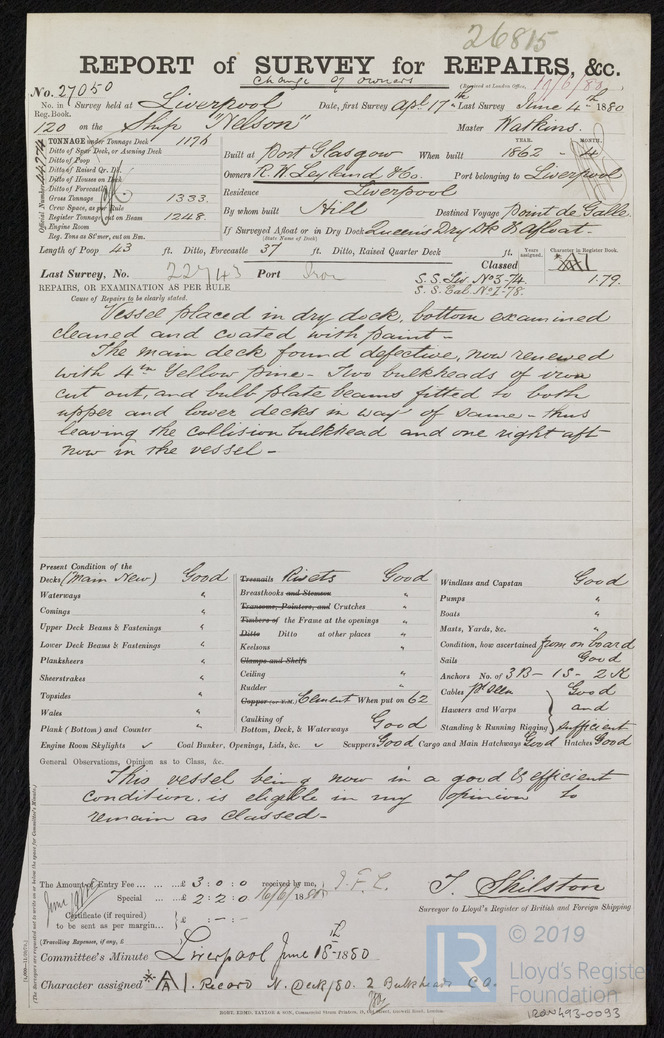 26815
REPORT of SURVEY for REPAIRS, &c.
change of owners
(Received at London Office,
No. 27050
No. in Survey held at Liverpool Date, first Survey Apl 17th Last Survey June 4th 1880
Reg. Book.
120 on the Ship "Nelson" Master Watkins.
TONNAGE under Tonnage Deck 1176
Ditto of Spar Deck, or Awning Deck
Ditto of Poop
Ditto of Raised Qr. Dk.
Ditto of Houses on Deck
Ditto of Forecastle
Gross Tonnage 1333.
Crew Space, as per Rule
Register Tonnage, cut on Beam 1248.
Engine Room
Reg. Tons as St'mer, cut on Bm.
Official Number 44274
YEAR. MONTH.
Built at Port Glasgow When built 1862 - 4
Owners R. W. Leyland & Co. Port belonging to Liverpool
Residence Liverpool
By whom built Hill Destined Voyage Point de Galle.
If Surveyed Afloat or in Dry Dock Queens Dry Dk & Afloat.
(State Name of Dock)
Length of Poop 43 ft. Ditto, Forecastle 37 ft. Ditto, Raised Quarter Deck ft.
Years assigned. Character in Register Book.
Last Survey, No. 22743 Port Iron Classed A1 1.79.
S. S. Liv. No 3-74.
S. S. Cal. No 1-78.
REPAIRS, OR EXAMINATION AS PER RULE
Cause of Repairs to be clearly stated.
Vessel placed in dry dock, bottom examined
cleaned and coated with paint -
The main deck found defective, now renewed
with 4 in Yellow pine - Two bulkheads of iron
cut out, and bulb plate beams fitted to both
upper and lower decks in way of same - thus
leaving the collision bulkhead and one right aft
now in the vessel -
Present Condition of the
Decks (Main New) Good
Waterways "
Comings "
Upper Deck Beams & Fastenings "
Lower Deck Beams & Fastenings "
Planksheers "
Sheerstrakes "
Topsides "
Wales "
Plank (Bottom) and Counter "
Treenails Rivets Good
Breasthooks and Stemson "
Transoms, Pointers, and Crutches "
Timbers of the Frame at the openings "
Ditto Ditto at other places "
Keelsons "
Clamps and Shelfs
Ceiling "
Rudder "
Copper (or Y.M.) Cement When put on 62
Caulking of
Bottom, Deck, & Waterways Good
Windlass and Capstan Good
Pumps "
Boats "
Masts, Yards, &c. "
Condition, how ascertained from on board
Sails Good
Anchors No. of 3 B - 1 S - 2 K
Cables Good
Hawsers and Warps and
Standing & Running Rigging sufficient
Engine Room Skylights Coal Bunker, Openings, Lids, &c. Scuppers Good Cargo and Main Hatchways Good Hatches Good
General Observations, Opinion as to Class, &c.
This vessel being now in a good & efficient
condition, is eligible in my opinion to
remain as classed -
The Amount of Entry Fee £ 3 : 0 : 0 received by me,
Special £ 2 : 2 : 0 16/6/1880
Certificate (if required) £ : - : -
to be sent as per margin
(Travelling Expenses, if any, £ )
Committee's Minute Liverpool June 15th 1880
Character assigned A1. Record N. Deck/80. 2 Bulkheads C.O.
T. Skilston
Surveyor to Lloyd's Register of British and Foreign Shipping
LR
© 2019
Lloyd's Register
Foundation
IRON493-0093